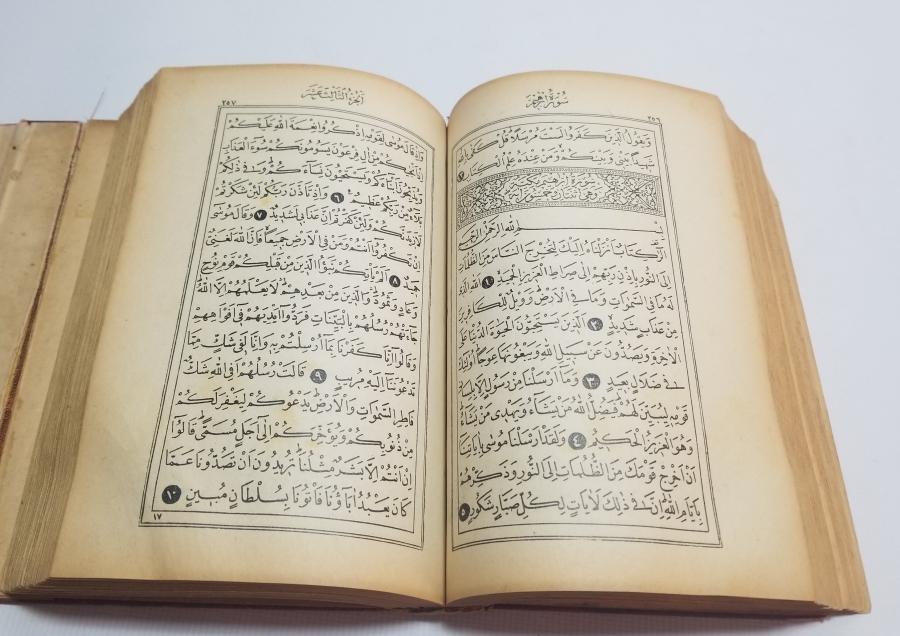 سُورَةُ اِبْرٰهِيمَ
٢٥٦
وَيَقُولُ الَّذِينَ كَفَرُوا لَسْتَ مُرْسَلًا قُلْ كَفٰى بِاللّٰهِ
شَهِيدًا بَيْنِى وَبَيْنَكُمْ وَمَنْ عِنْدَهُ عِلْمُ الْكِتَابِ
بِسْمِ اللّٰهِ الرَّحْمٰنِ الرَّحِيمِ
الٓرٰ كِتَابٌ اَنْزَلْنَاهُ اِلَيْكَ لِتُخْرِجَ النَّاسَ مِنَ الظُّلُمَاتِ
اِلَى النُّورِ بِاِذْنِ رَبِّهِمْ اِلٰى صِرَاطِ الْعَزِيزِ الْحَمِيدِ ١ اَللّٰهِ الَّذِى
لَهُ مَا فِى السَّمٰوَاتِ وَمَا فِى الْاَرْضِ وَوَيْلٌ لِلْكَافِرِينَ
مِنْ عَذَابٍ شَدِيدٍ ٢ اَلَّذِينَ يَسْتَحِبُّونَ الْحَيٰوةَ الدُّنْيَا عَلَى
الْاٰخِرَةِ وَيَصُدُّونَ عَنْ سَبِيلِ اللّٰهِ وَيَبْغُونَهَا عِوَجًا اُولٰئِكَ
فِى ضَلَالٍ بَعِيدٍ ٣ وَمَا اَرْسَلْنَا مِنْ رَسُولٍ اِلَّا بِلِسَانِ
قَوْمِهِ لِيُبَيِّنَ لَهُمْ فَيُضِلُّ اللّٰهُ مَنْ يَشَاءُ وَيَهْدِى مَنْ يَشَاءُ
وَهُوَ الْعَزِيزُ الْحَكِيمُ ٤ وَلَقَدْ اَرْسَلْنَا مُوسٰى بِاٰيَاتِنَا
اَنْ اَخْرِجْ قَوْمَكَ مِنَ الظُّلُمَاتِ اِلَى النُّورِ وَذَكِّرْهُمْ
بِاَيَّامِ اللّٰهِ اِنَّ فِى ذٰلِكَ لَاٰيَاتٍ لِكُلِّ صَبَّارٍ شَكُورٍ ٥
اَلْجُزْءُ الثَّالِثَ عَشَرَ
٢٥٧
وَاِذْ قَالَ مُوسٰى لِقَوْمِهِ اذْكُرُوا نِعْمَةَ اللّٰهِ عَلَيْكُمْ
اِذْ اَنْجٰيكُمْ مِنْ اٰلِ فِرْعَوْنَ يَسُومُونَكُمْ سُوءَ الْعَذَابِ
وَيُذَبِّحُونَ اَبْنَاءَكُمْ وَيَسْتَحْيُونَ نِسَاءَكُمْ وَفِى ذٰلِكُمْ
بَلَاءٌ مِنْ رَبِّكُمْ عَظِيمٌ ٦ وَاِذْ تَاَذَّنَ رَبُّكُمْ لَئِنْ شَكَرْتُمْ
لَاَزِيدَنَّكُمْ وَلَئِنْ كَفَرْتُمْ اِنَّ عَذَابِى لَشَدِيدٌ ٧ وَقَالَ مُوسٰى
اِنْ تَكْفُرُوا اَنْتُمْ وَمَنْ فِى الْاَرْضِ جَمِيعًا فَاِنَّ اللّٰهَ لَغَنِىٌّ
حَمِيدٌ ٨ اَلَمْ يَاْتِكُمْ نَبَؤُا الَّذِينَ مِنْ قَبْلِكُمْ قَوْمِ نُوحٍ
وَعَادٍ وَثَمُودَ وَالَّذِينَ مِنْ بَعْدِهِمْ لَا يَعْلَمُهُمْ اِلَّا اللّٰهُ
جَاءَتْهُمْ رُسُلُهُمْ بِالْبَيِّنَاتِ فَرَدُّوا اَيْدِيَهُمْ فِى اَفْوَاهِهِمْ
وَقَالُوا اِنَّا كَفَرْنَا بِمَا اُرْسِلْتُمْ بِهِ وَاِنَّا لَفِى شَكٍّ مِمَّا
تَدْعُونَنَا اِلَيْهِ مُرِيبٍ ٩ قَالَتْ رُسُلُهُمْ اَفِى اللّٰهِ شَكٌّ
فَاطِرِ السَّمٰوَاتِ وَالْاَرْضِ يَدْعُوكُمْ لِيَغْفِرَ لَكُمْ
مِنْ ذُنُوبِكُمْ وَيُؤَخِّرَكُمْ اِلٰى اَجَلٍ مُسَمًّى قَالُوا
اِنْ اَنْتُمْ اِلَّا بَشَرٌ مِثْلُنَا تُرِيدُونَ اَنْ تَصُدُّونَا عَمَّا
كَانَ يَعْبُدُ اٰبَاؤُنَا فَاْتُونَا بِسُلْطَانٍ مُبِينٍ ١٠
١٧